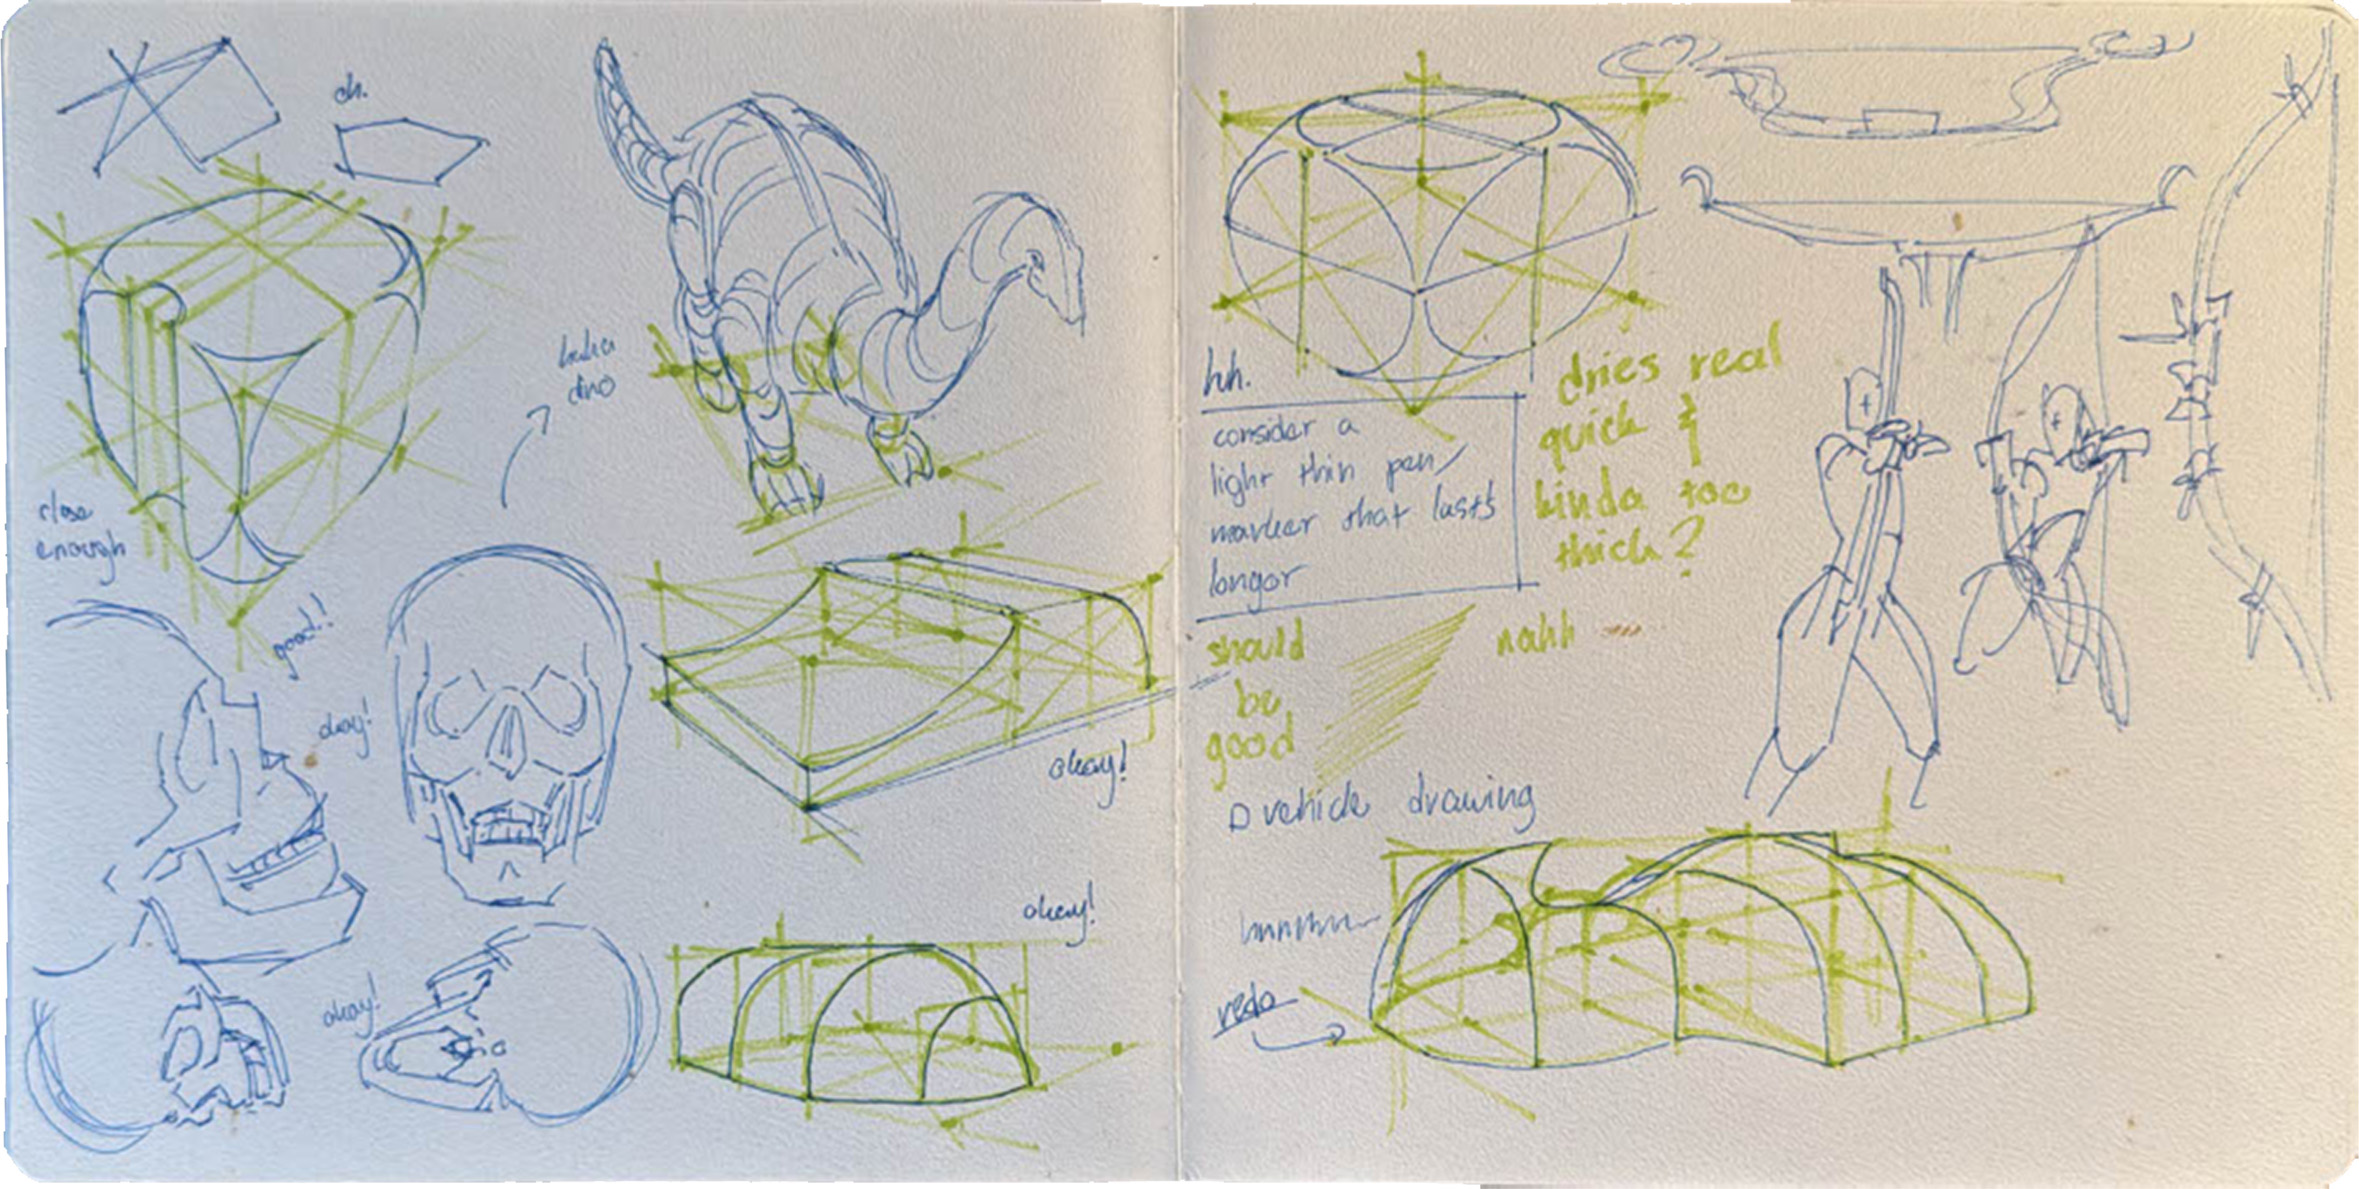 eh.
haha
dino
close
enough
good!
okay!
okay!
okay!
okay!
hh.
consider a
light thin pen/
marker that lasts
longer
dries real
quick &
kinda too
thick?
should
be
good
nahh
vehicle drawing
hmmmm
redo